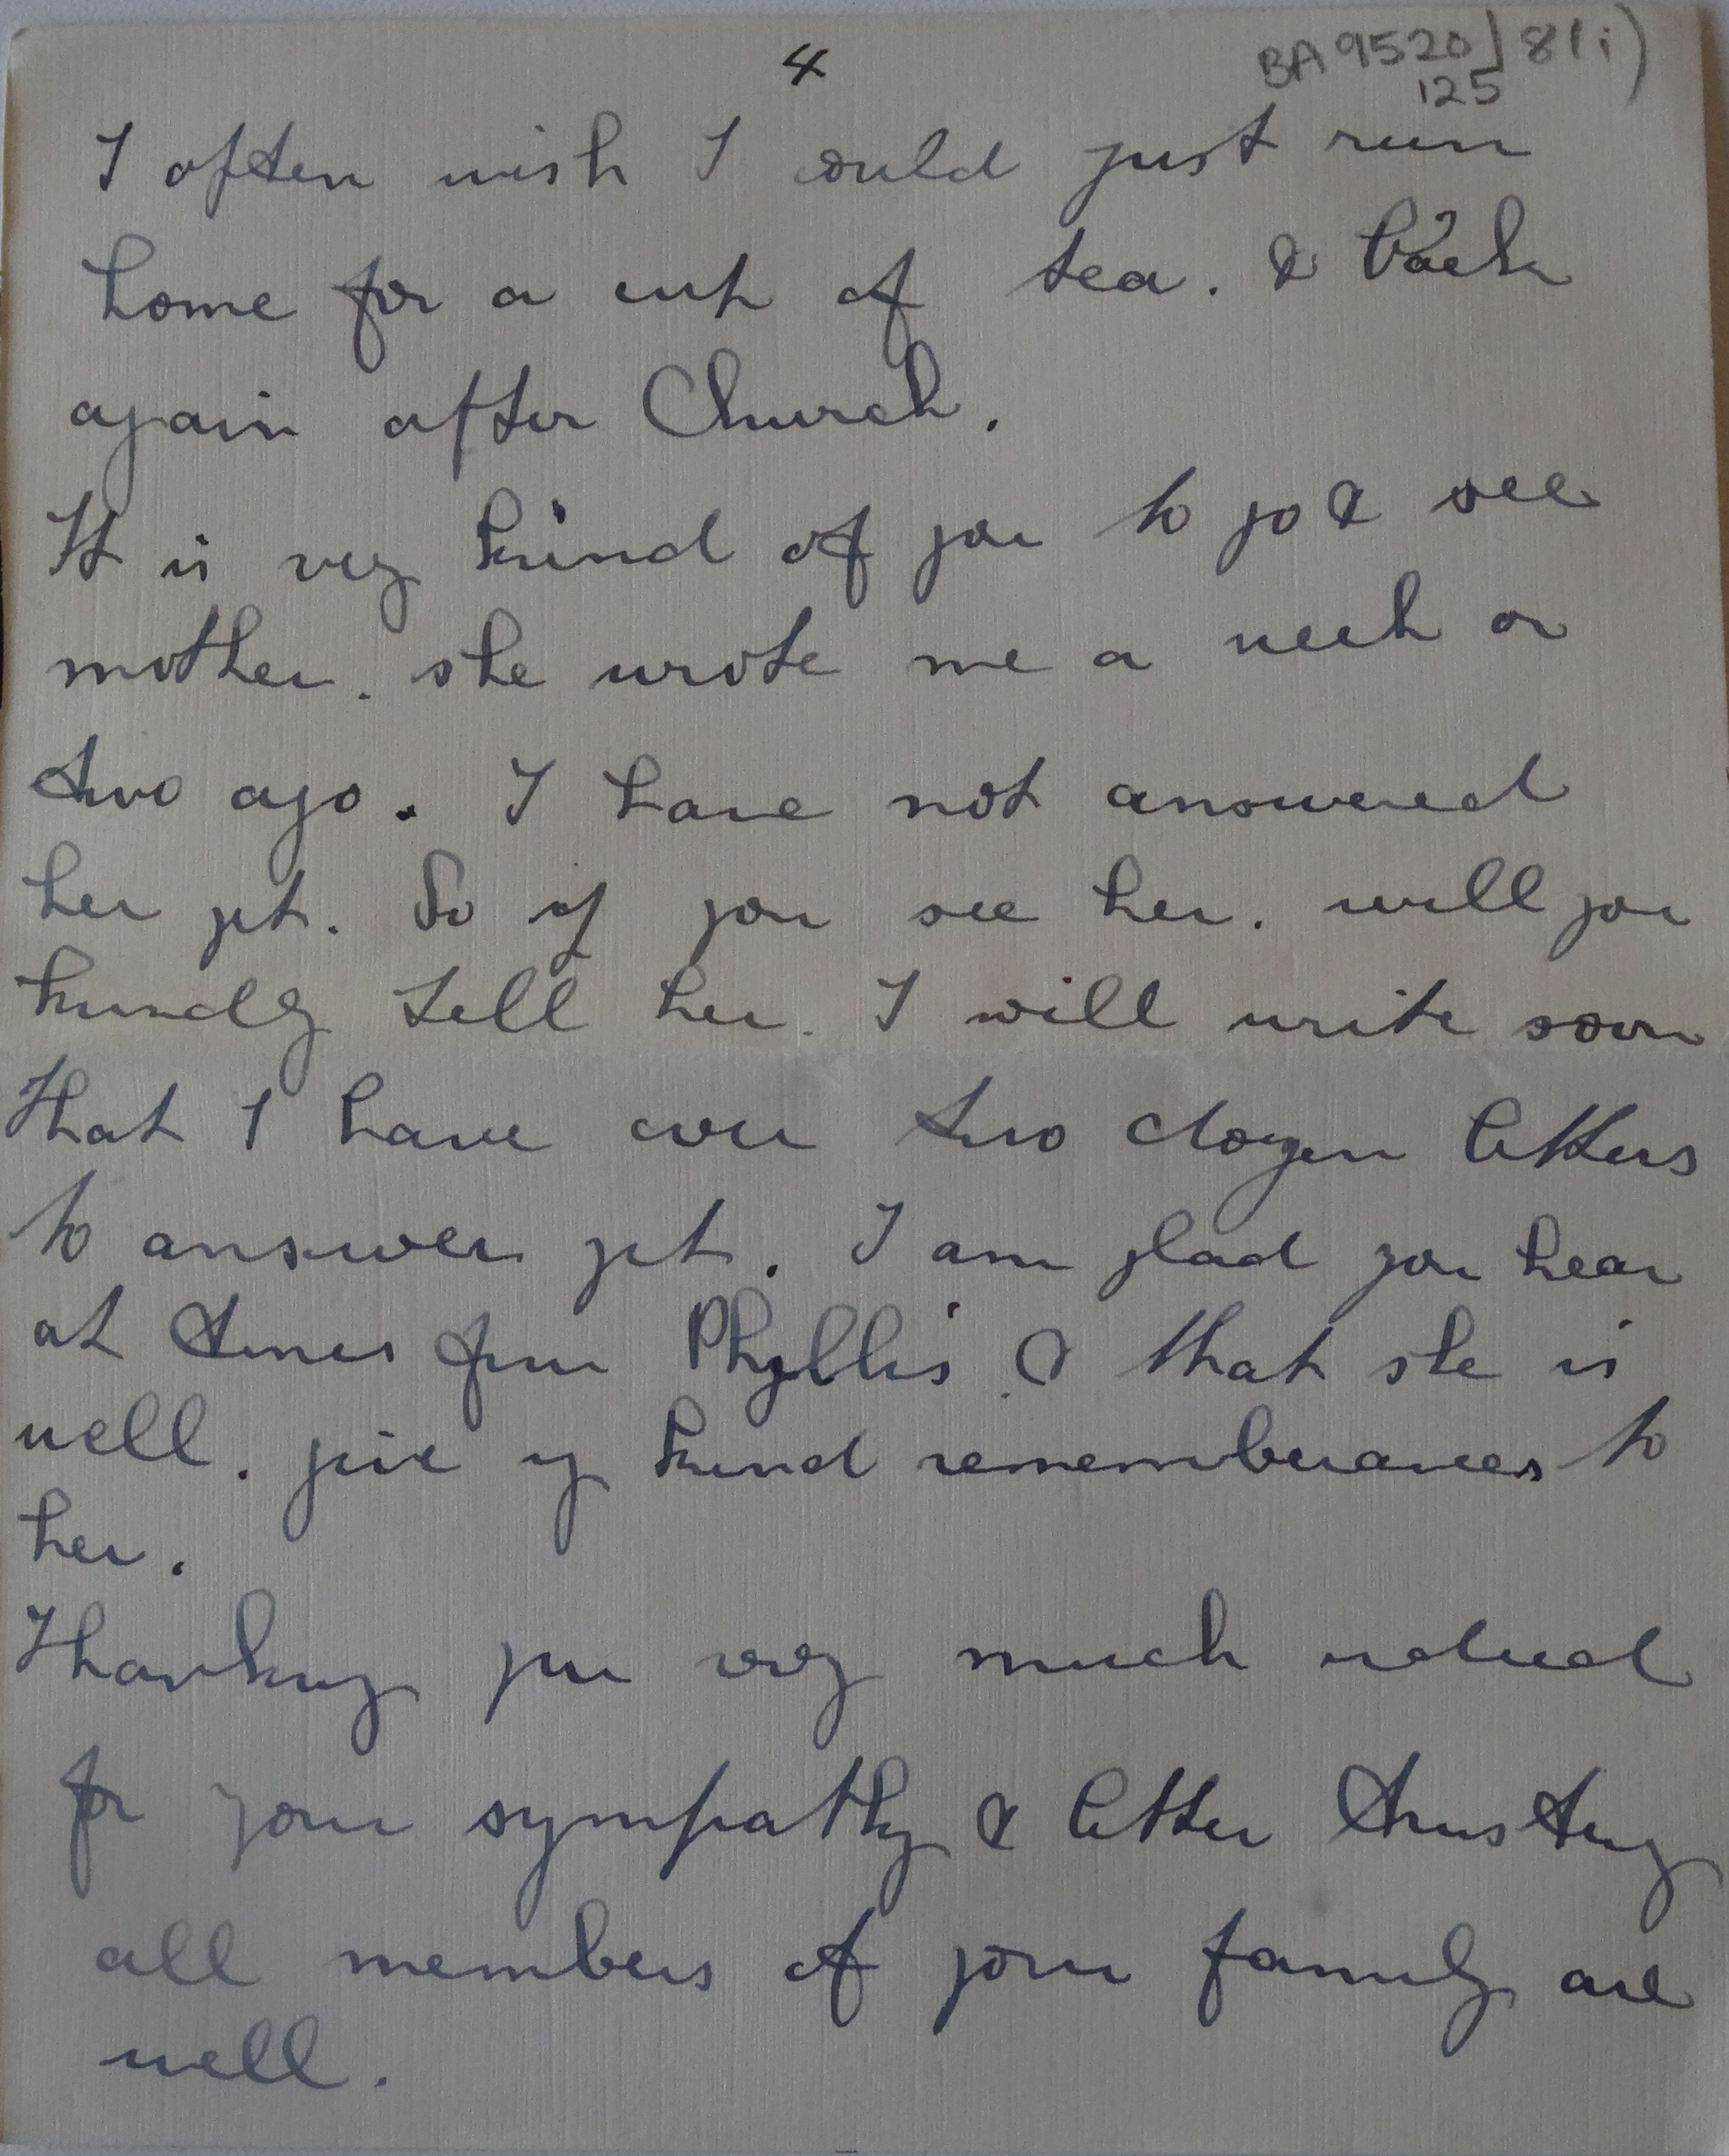 4
BA 9520 / 8(i)
125
I often wish I could just run
home for a cup of tea. & back
again after Church.
It is very kind of you to go & see
mother. she wrote me a week or
two ago. I have not answered
her yet. So if you see her. will you
kindly tell her. I will write soon
That I have over two dozen letters
to answer yet. I am glad you hear
at times from Phyllis & that she is
well. give my kind rememberances to
her.
Thanking you very much indeed
for your sympathy & letter trusting
all members of your family are
well.